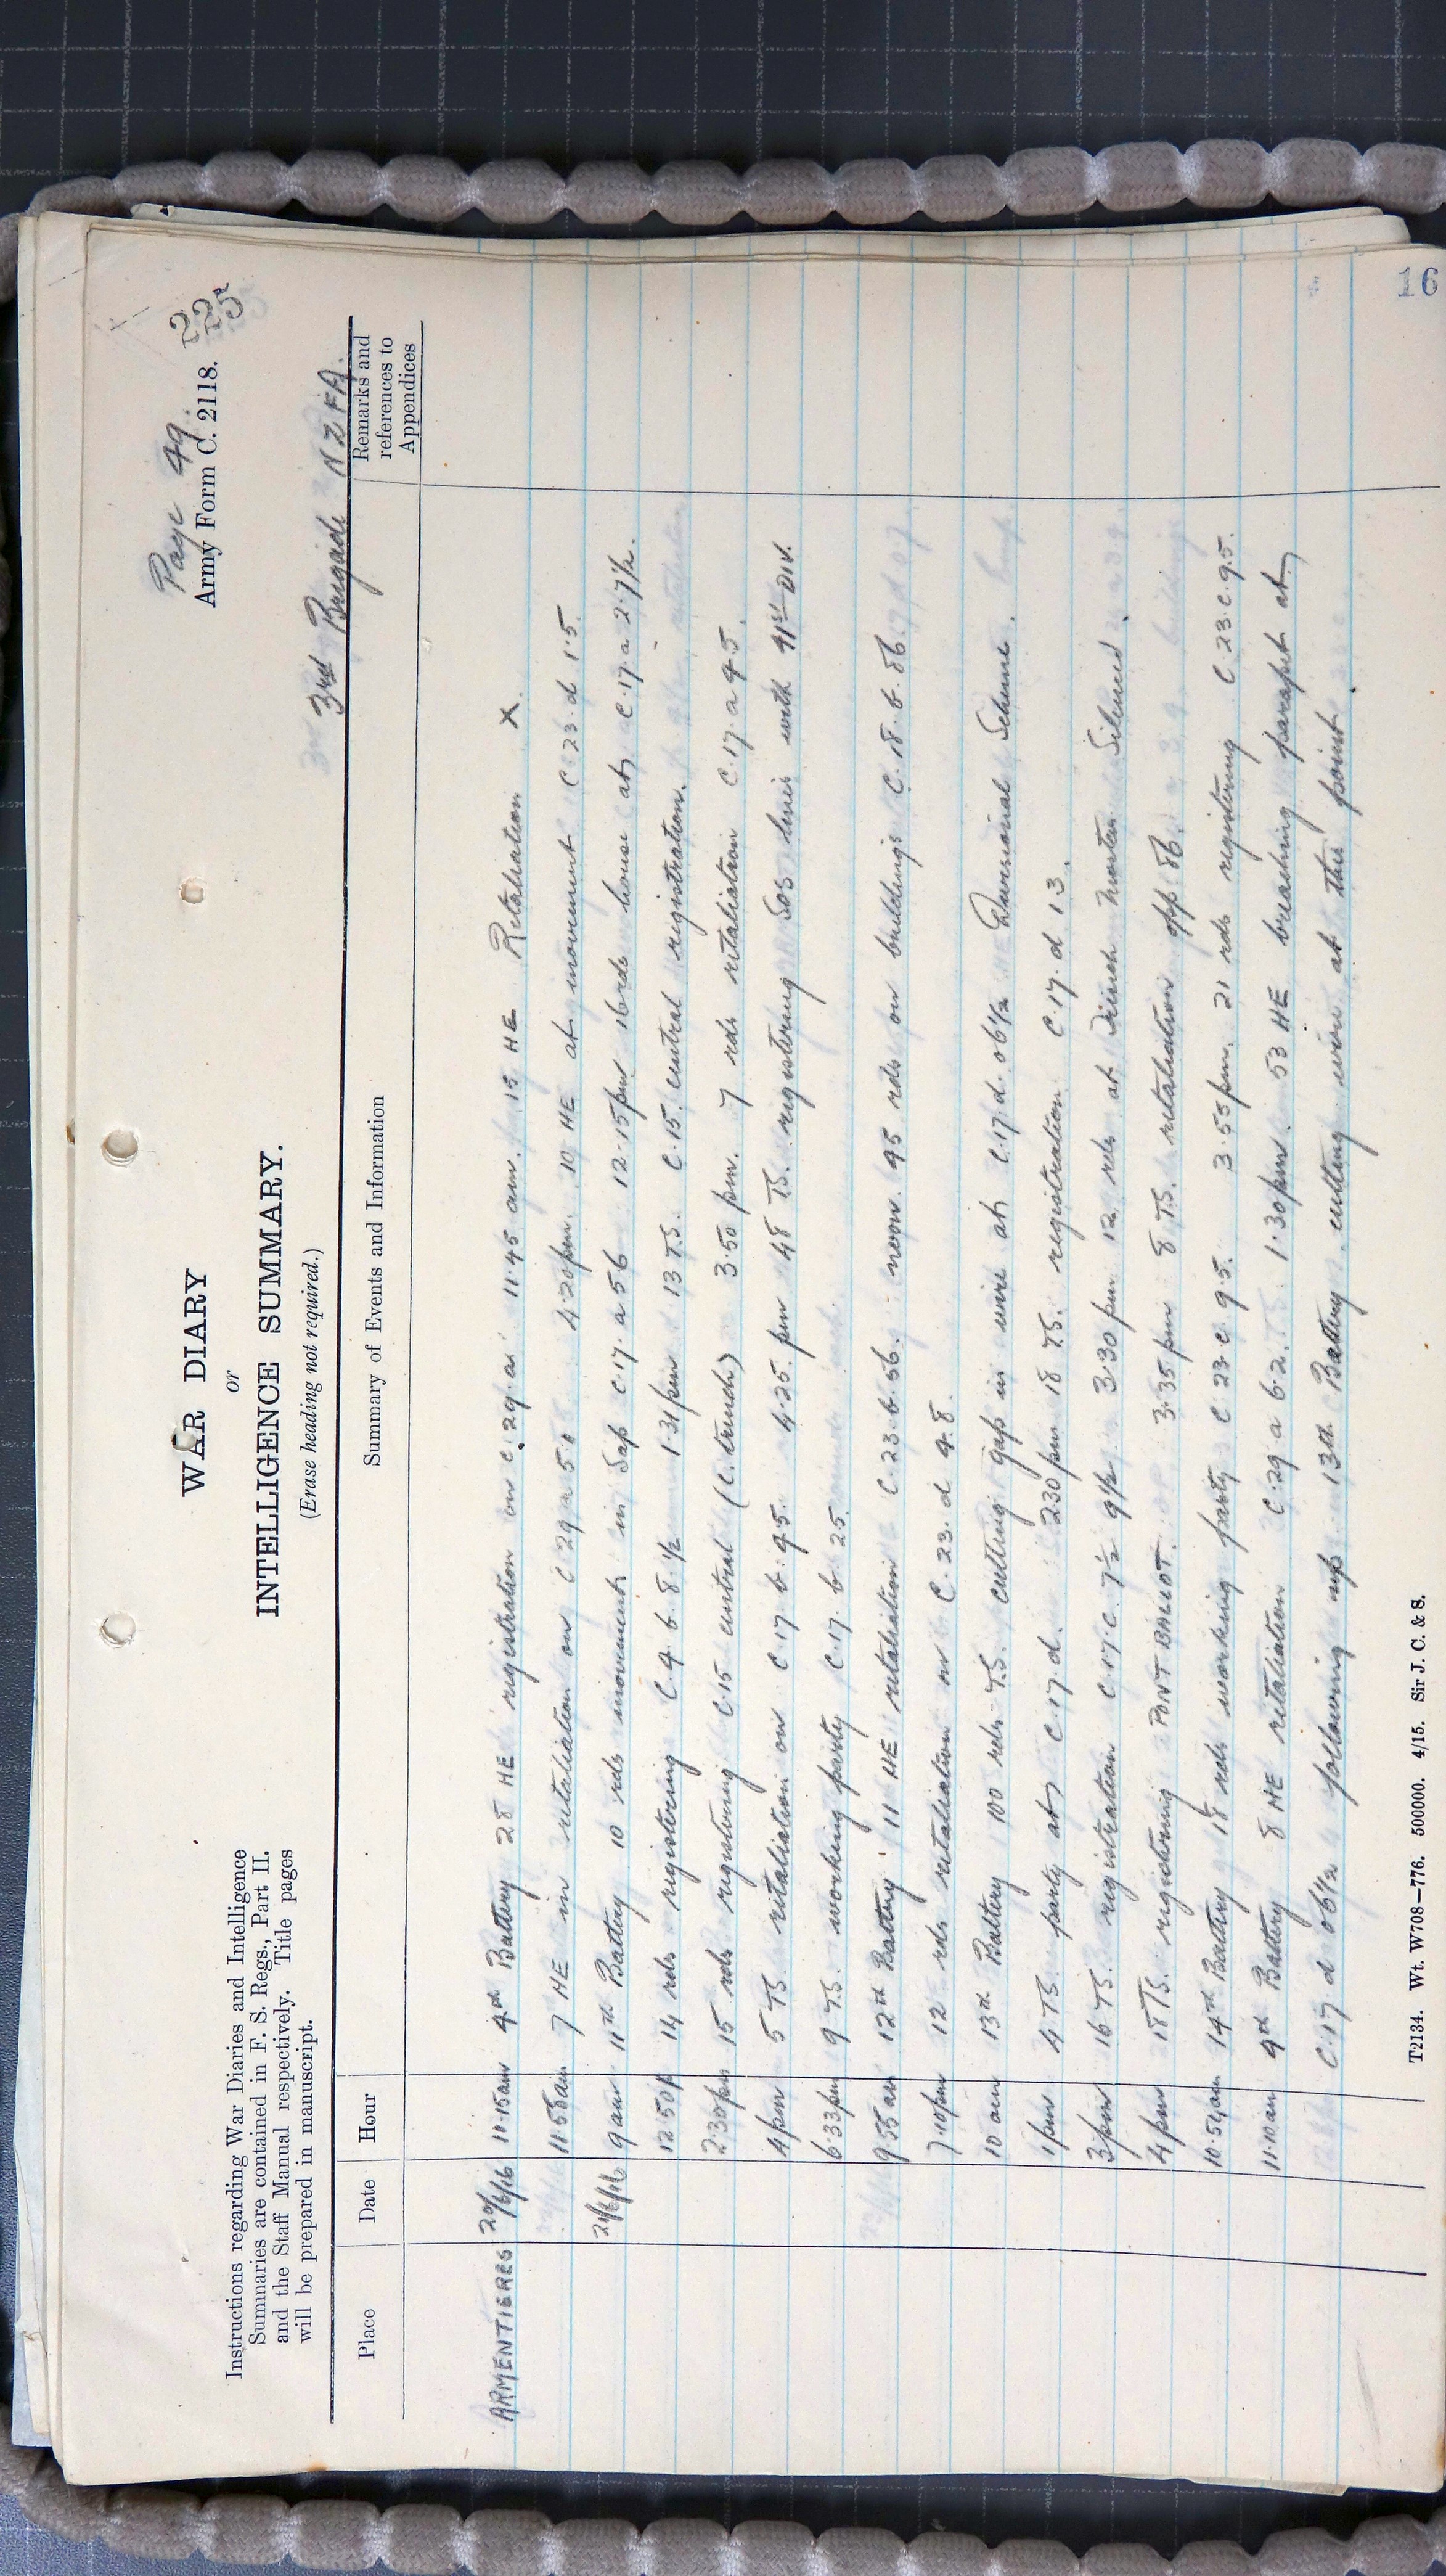 Page 49.
Army Form C. 2118.
225
WAR DIARY
or
INTELLIGENCE SUMMARY.
(Erase heading not required.)
Instructions regarding War Diaries and Intelligence
Summaries are contained in F. S. Regs., Part II.
and the Staff Manual respectively. Title pages
will be prepared in manuscript.
3rd Brigade NZFA.
Place Date Hour Summary of Events and Information Remarks and references to Appendices
ARMENTIERES 20/6/16 11.15am 4th Battery 28 HE registration on C.29.a. 11.45 am. 15 HE Retaliation X.
11.58am 7 HE in retaliation on C 29 a 5.8 4.20pm. 10 HE at movement C 23. d 1.5.
21/6/16 9am 11th Battery 10 rds movement in Sap C.17. a 56 12-15pm 16 rds house at C.17. a 2.7½.
12.50p 14 rds registering C.4. b. 8.½ 1.31pm 13 T.S. C.15. central registration.
2.30pm 15 rds registering C.15 central (C. trench) 3.50 pm. 7 rds retaliation C.17. a 45.
4pm 5 TS retaliation on C.17. b. 45. 4.25. pm 48 TS. registering SOS lines with 41st DIV.
6.33pm 9 T.S. working party C.17. b. 25.
9.55am 12th Battery 11 HE retaliation C.23. b. 56. noon 95 rds on buildings C.18. b. 86.
7.10pm 12 rds retaliation on C.23. d 4.8.
10 am 13th Battery 100 rds T.S. cutting gap in wire at C.17. d. 06½ Divisional Scheme.
1pm 4 TS. party at C.17. d. 2.30pm 18 T.S. registration C.17. d 13.
3pm 16 TS. registration C.17. c. 7½ 9½ 3.30 pm 12 rds at Trench Mortar. Silenced.
4pm 18 TS. registering PONT BALLOT. 3.35 pm 8 TS. retaliation opp. 86.
10.54am 14th Battery 18 rds working party C.23. c. 9.5. 3.55 pm. 21 rds registering C.23. c. 9.5.
11.10am 4th Battery 8 HE retaliation C.29. a 6.2. 1.30 pm. 53 HE breaching parapet at
C.17. d 06½ following up 13th Battery cutting wire at this point.
T2134. Wt. W708—776. 500000. 4/15. Sir J. C. & S.
16